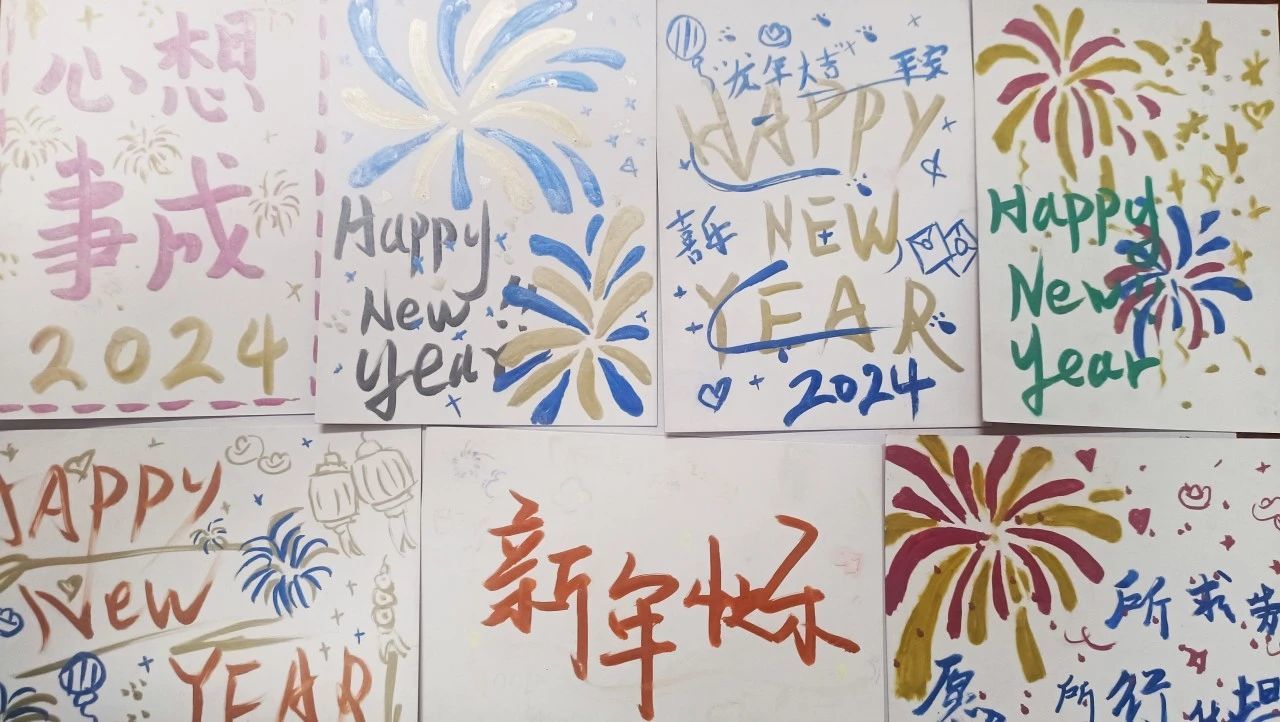 心想
事成
2024
Happy
New
year
龙年大吉 平安
HAPPY
喜乐
NEW
YEAR
2024
Happy
New
year
HAPPY
New
YEAR
新年快乐
所求
愿 所行 坦